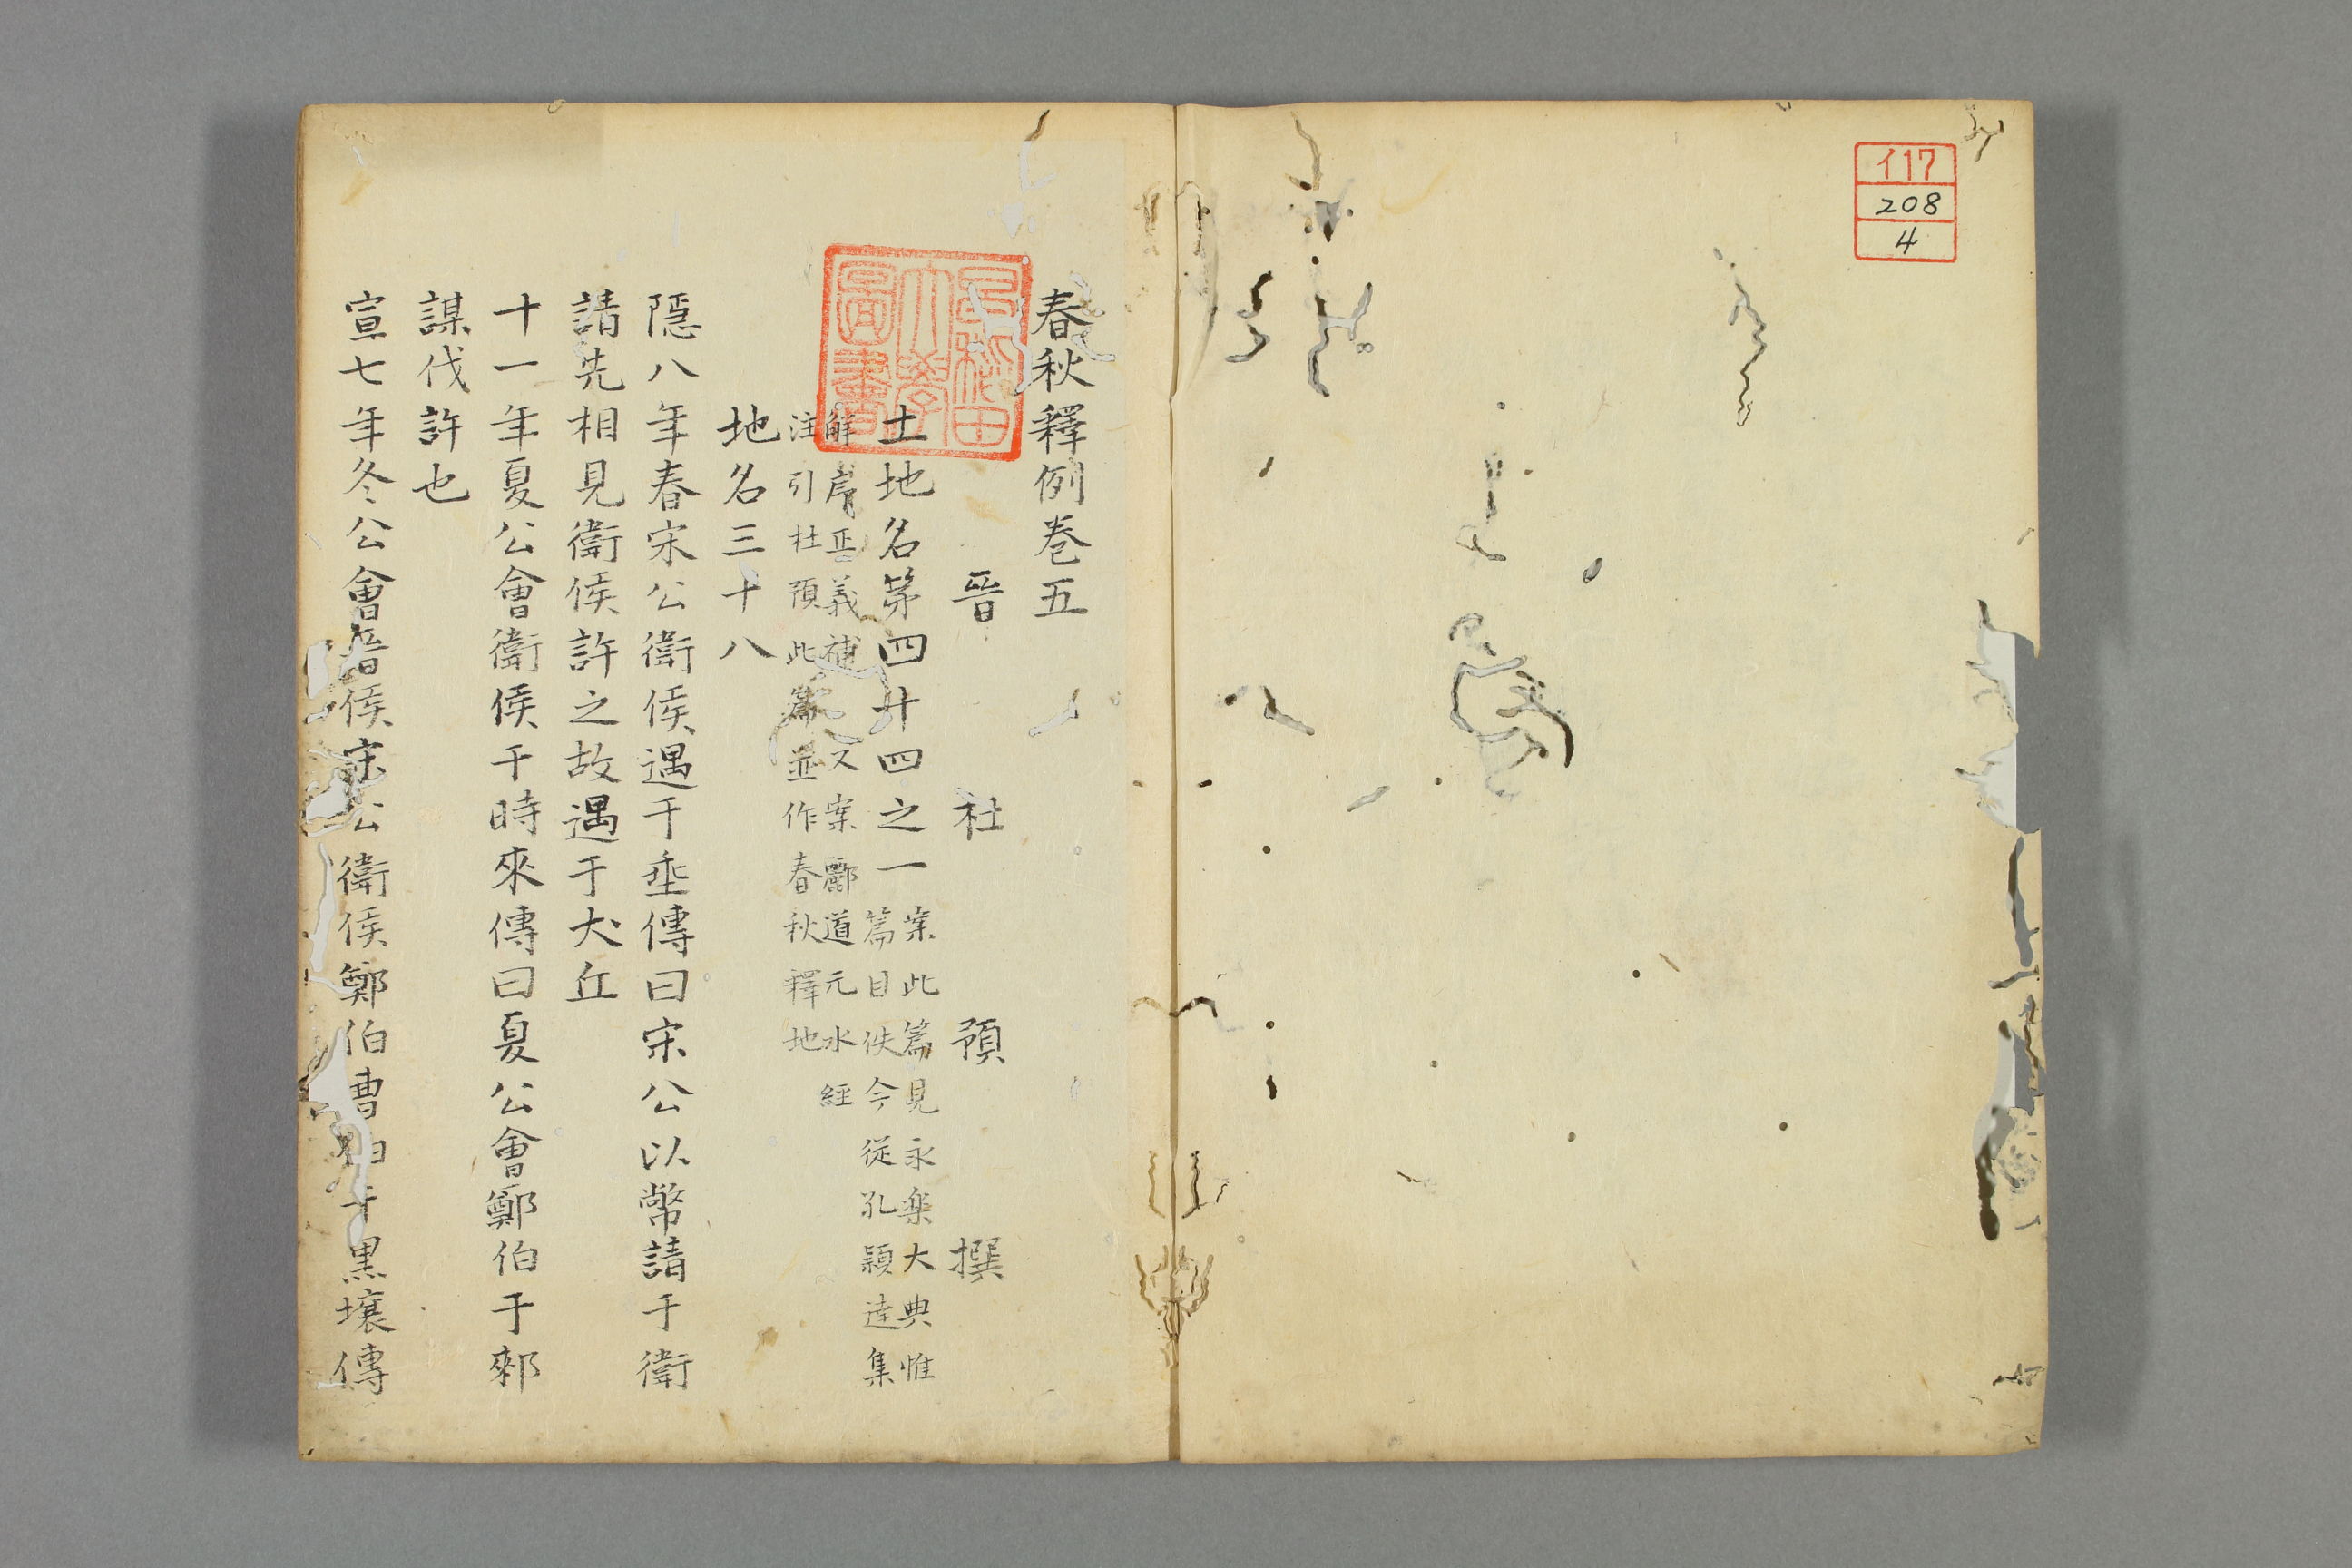 イ17
208
4
春秋釋例巻五
晉 杜 預 撰
土地名第四十四之一
案此篇見永楽大典惟
篇篇目佚今從孔穎達集
解序正義補又案酈道元水經
注引杜預此篇並作春秋釋地
地名三十八
隱八年春宋公衛侯遇于垂傳曰宋公以幣請于衛
請先相見衛侯許之故遇于犬丘
十一年夏公會衛侯于時來傳曰夏公會鄭伯于郲
謀伐許也
宣七年冬公會晉侯宋公衛侯鄭伯曹伯于黒壤傳
早稲田
大學
圖書